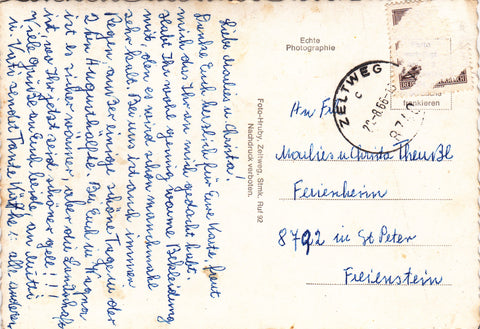 Liebe Marlies u. Christa!
Danke Euch herzlich für Eure Karte, freut
mich das Ihr an mich gedacht habt.
Habt Ihr wohl genug warme Bekleidung
mit, den es wird schon manchmal
sehr kalt. Bei uns ist auch immer
Regen, nur 3er einige schöne Tage in der
2ten Augusthälfte. Bei Euch in Wagna
ist es sicher wärmer, aber die Landschaft
ist, wo Ihr jetzt seid schöner gell!!!
Viele Grüße an Euch beide, an Mutti
u. Vati sendet Tante Käthe u. alle anderen
Echte
Photographie
Foto-Hruby, Zeltweg, Stmk, Ruf 92
Nachdruck verboten.
ZELTWEG
frankieren
An Frl
Marlies u. Christa Theußl
Ferienheim
8792 in St Peter
Freienstein